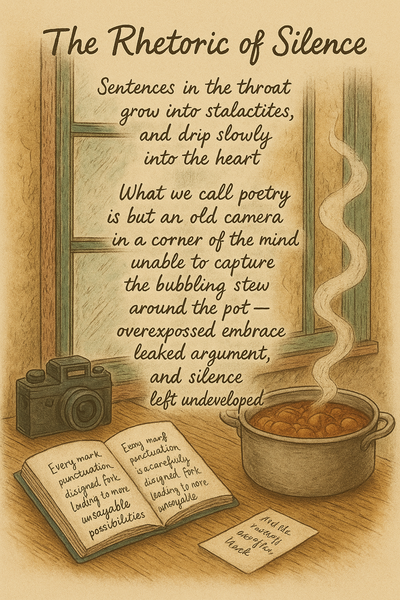 The Rhetoric of Silence
Sentences in the throat
grow into stalactites,
and drip slowly
into the heart
What we call poetry
is but an old camera
in a corner of the mind
unable to capture
the bubbling stew
around the pot —
overexpossed embrace
leaked argument,
and silence
left undeveloped
Every mark
punctuation
disigned fork
leading to more
unsayable
possibilities
Every marf
punctuation
is a carefully
disigned fork
leading to nore
unsoyable
And the